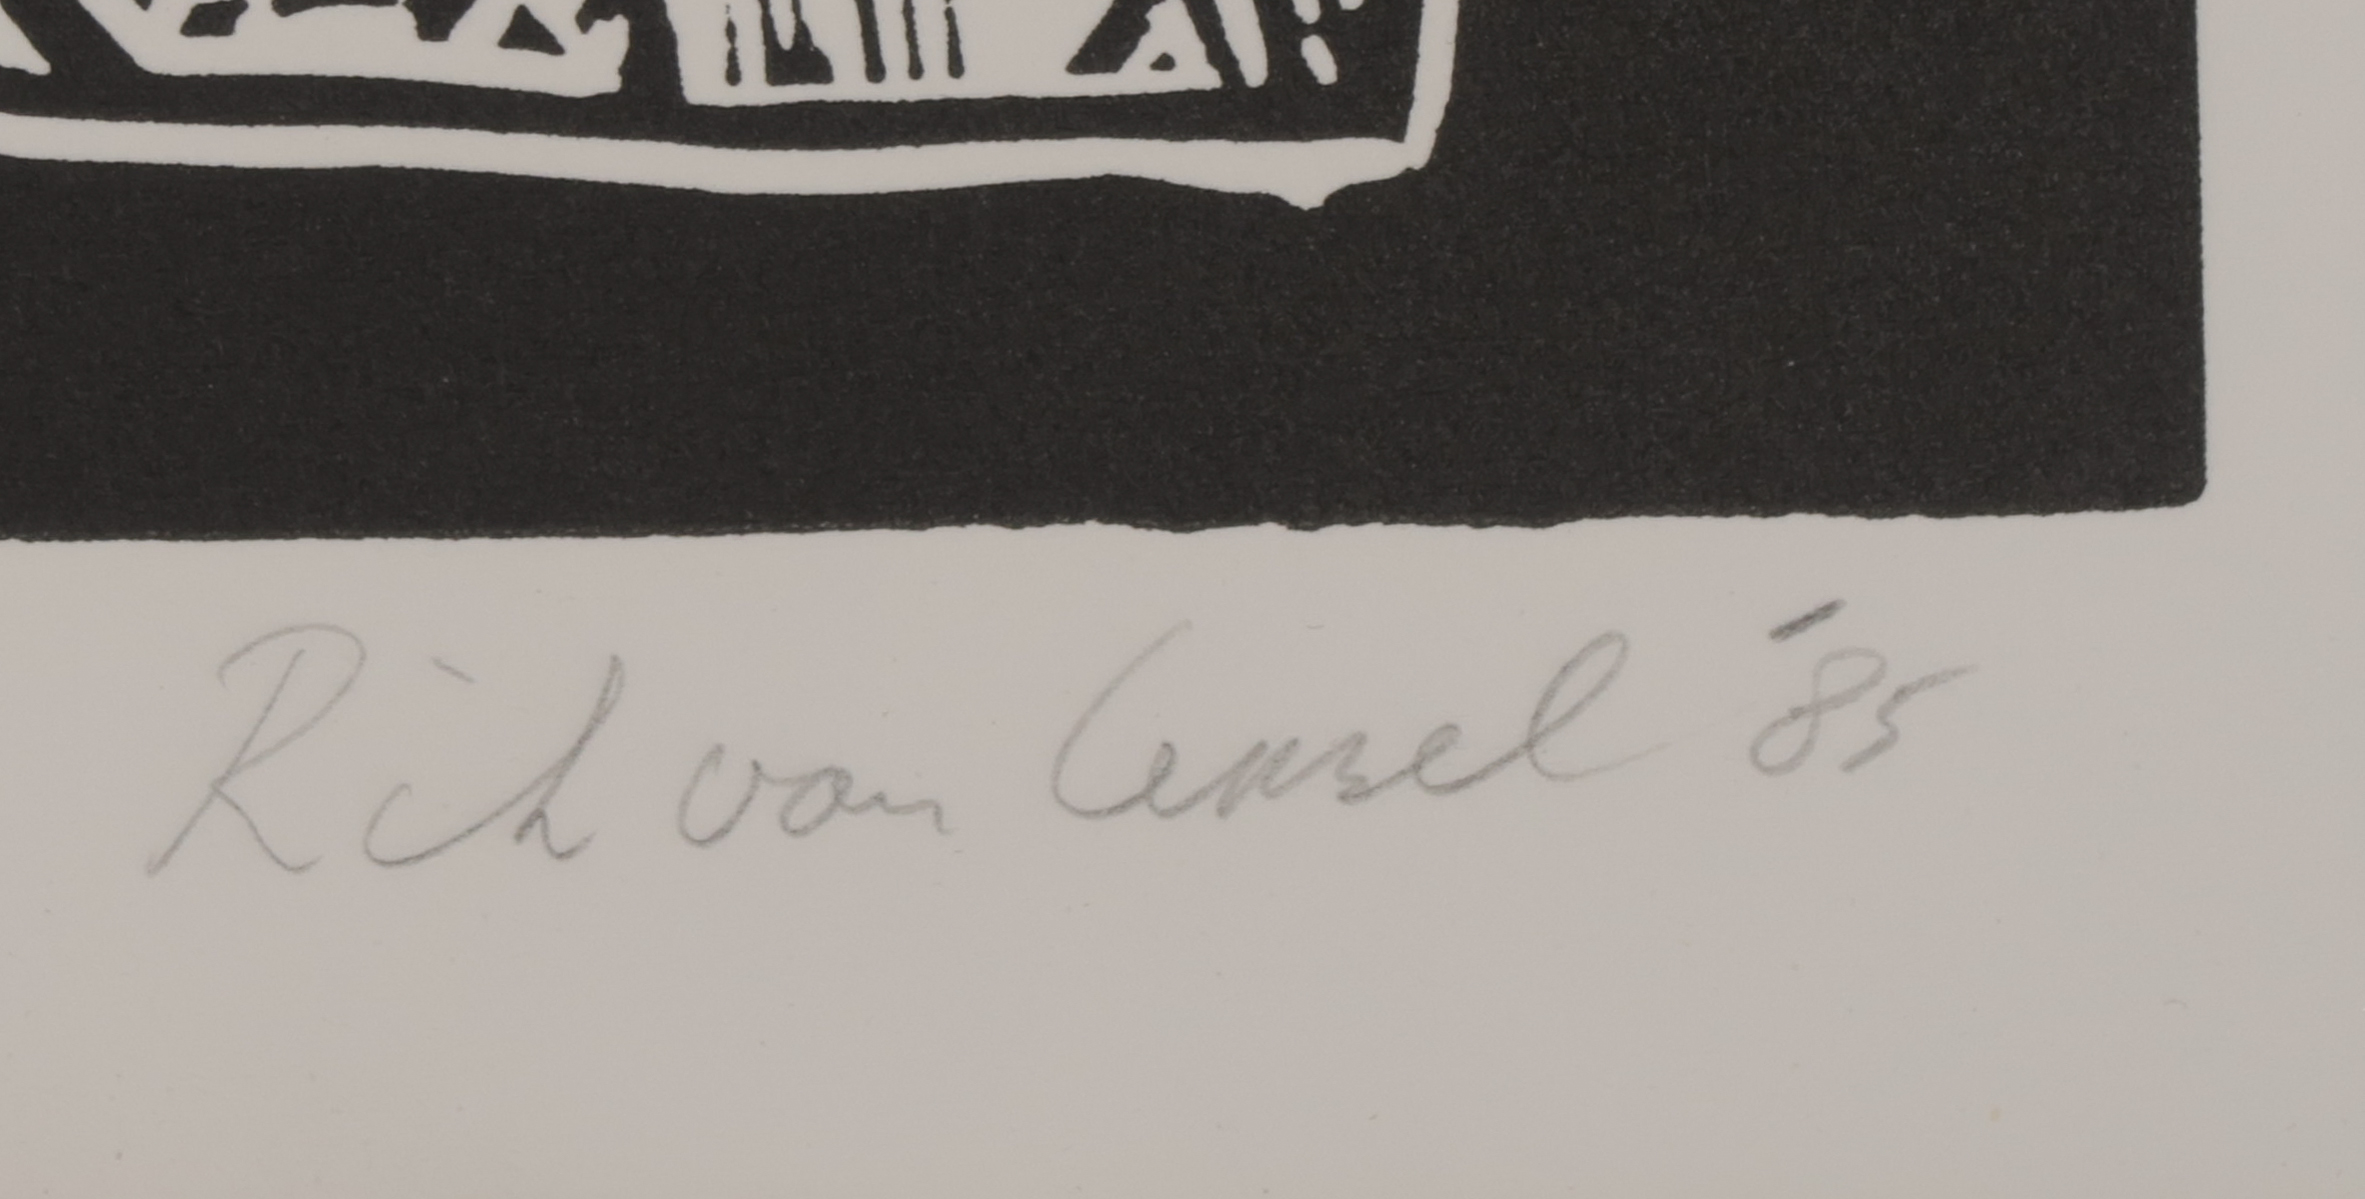 Rik van Iersel '85